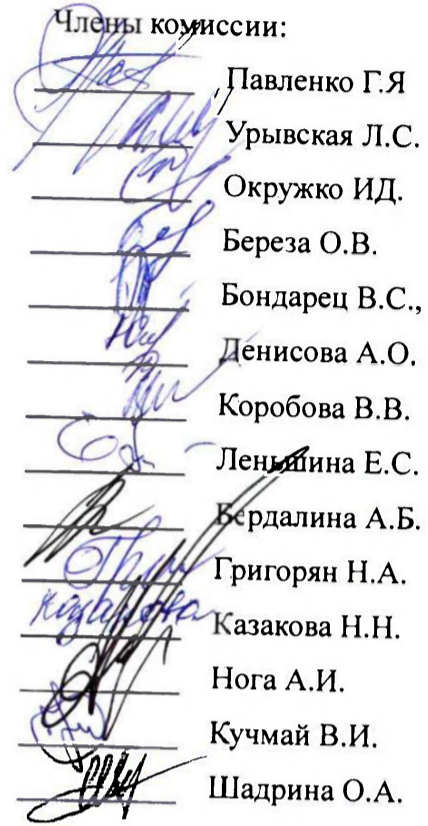 Члены комиссии:
Павленко Г.Я
Урывская Л.С.
Окружко ИД.
Береза О.В.
Бондарец В.С.,
Денисова А.О.
Коробова В.В.
Леньшина Е.С.
Бердалина А.Б.
Григорян Н.А.
казакова Казакова Н.Н.
Нога А.И.
Кучмай В.И.
Шадрина О.А.